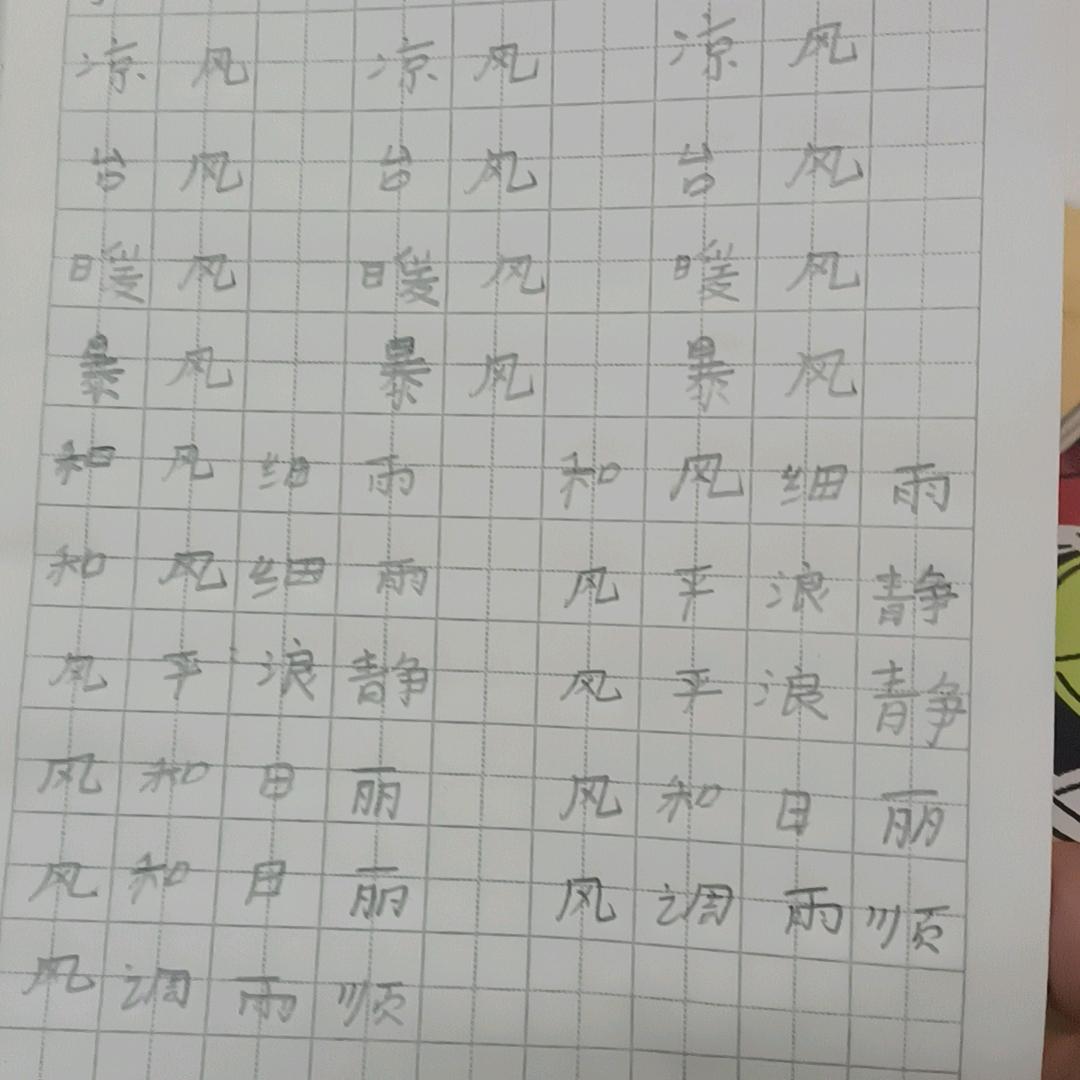 凉风 凉风 凉风
台风 台风 台风
暖风 暖风 暖风
暴风 暴风 暴风
和风细雨 和风细雨
和风细雨 风平浪静
风平浪静 风平浪静
风和日丽 风和日丽
风和日丽 风调雨顺
风调雨顺